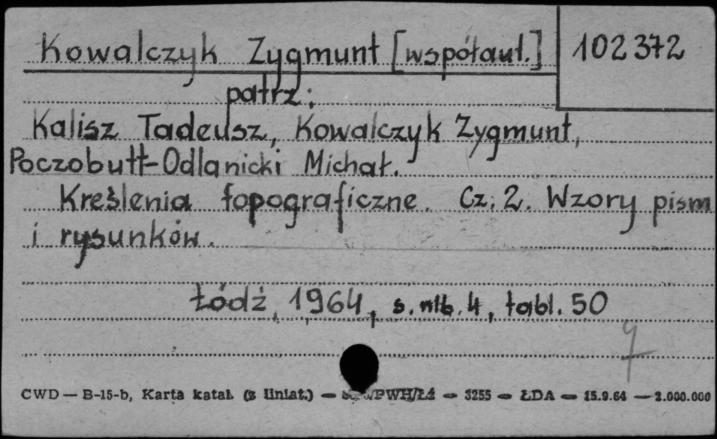 Kowalczyk Zygmunt [współaut.] 102372
patrz:
Kalisz Tadeusz, Kowalczyk Zygmunt,
Poczobutt-Odlanicki Michał.
Kreślenia topograficzne. Cz. 2. Wzory pism
i rysunków.
Łódź, 1964, s. nlb. 4, tabl. 50
CWD — B-15-b, Karta katal. (z liniat.) — PWH/Łź — 3255 — ŁDA — 15.9.64 — 2.000.000